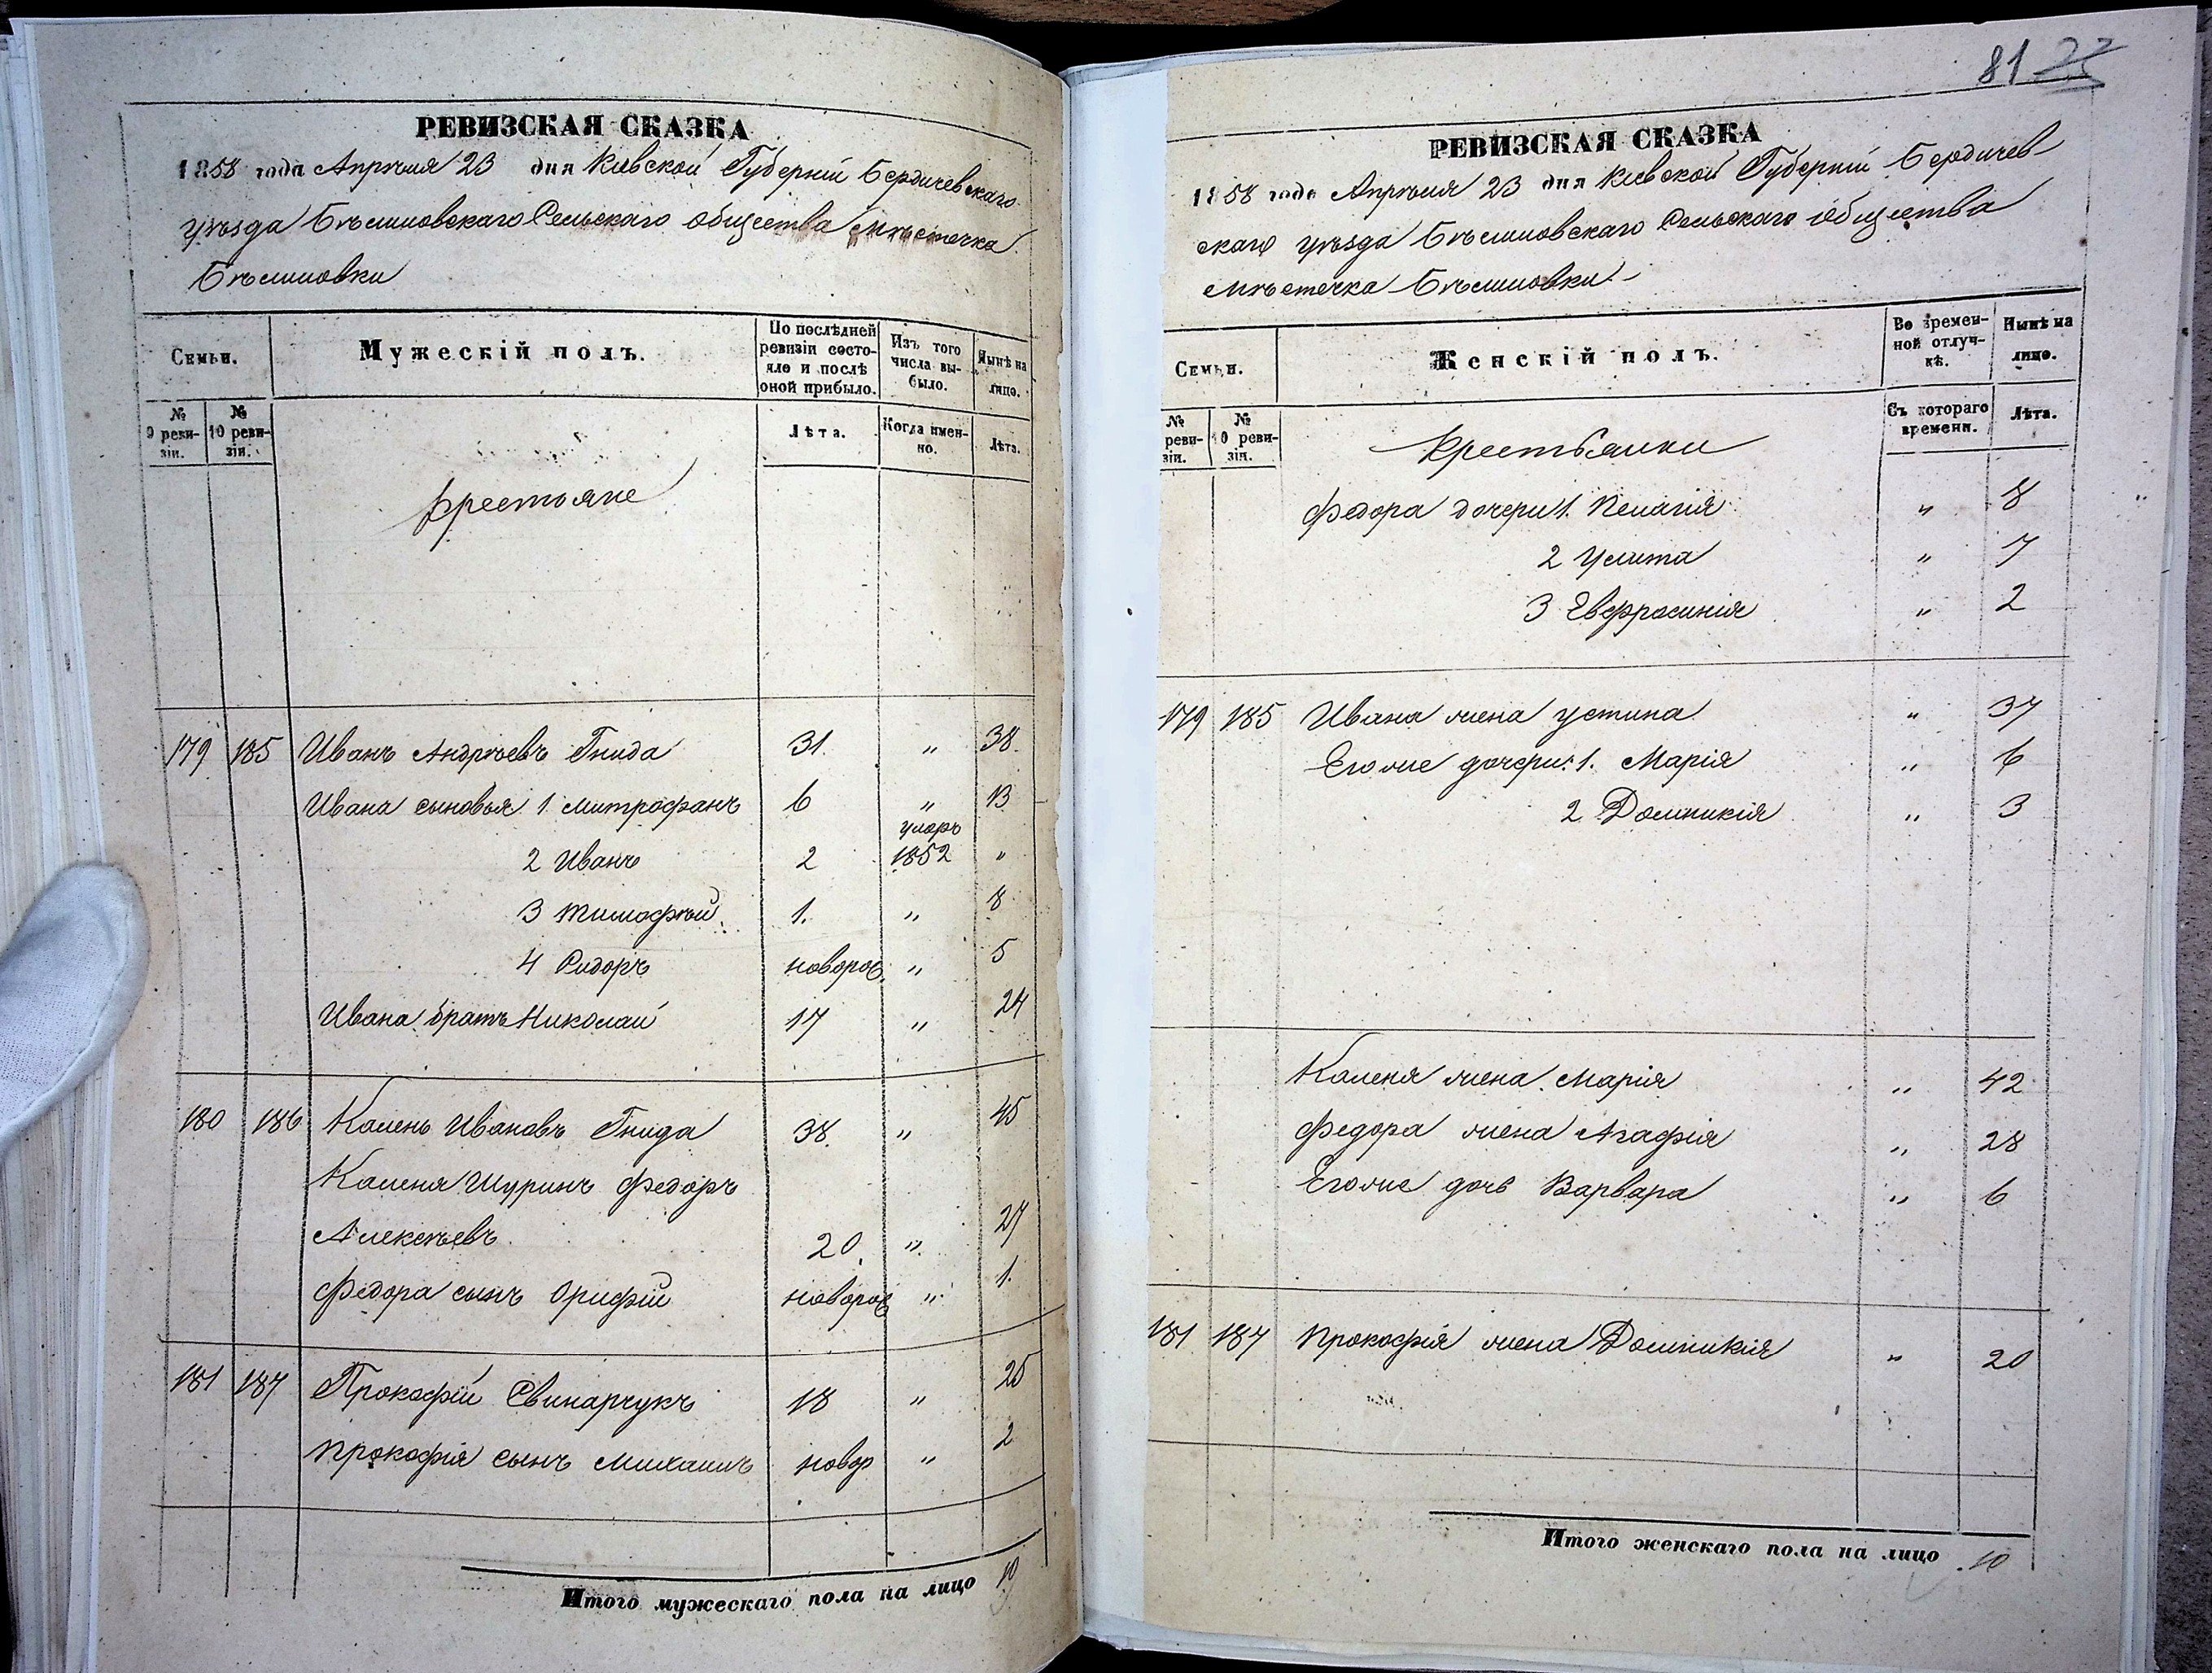 РЕВИЗСКАЯ СКАЗКА
1858 года Апрѣля 23 дня Кіевской Губерніи Бердичевскаго
уѣзда Бѣлиловскаго Сельскаго общества мѣстечка
Бѣлиловки
Семьи.
Мужескій полъ.
По послѣдней ревизіи состояло и послѣ оной прибыло.
Изъ того числа выбыло.
Нынѣ на лицо.
№ 9 ревизіи.
№ 10 ревизіи.
Лѣта.
Когда именно.
Лѣта.
Крестьяне
179 185 Иванъ Андрѣевъ Гнида 31. " 38.
Ивана сыновья 1 Митрофанъ 6 " 13
умеръ
2 Иванъ 2 1852 "
3 Тимофѣй 1. " 8
4 Сидоръ новорож " 5
Ивана братъ Николай 17 " 24
180 186 Калень Ивановъ Гнида 38. " 45
Каленя Шуринъ Федоръ
Алексѣевъ 20. " 27
Федора сынъ Орифій новорож " 1.
181 187 Прокофій Свинарчукъ 18 " 25
Прокофія сынъ Михаилъ новор " 2
Итого мужескаго пола на лицо 10
81
РЕВИЗСКАЯ СКАЗКА
1858 года Апрѣля 23 дня Кіевской Губерніи Бердичев-
скаго уѣзда Бѣлиловскаго Сельскаго общества
мѣстечка Бѣлиловки
Семьи.
Женскій полъ.
Во времен-
ной отлуч-
кѣ.
Нынѣ на
лицо.
№
реви-
зіи.
№
0 реви-
зія.
Съ котораго
времени.
Лѣта.
Крестьянки
Федора дочери 1. Пелагія " 8
2 Улита " 7
3 Евфросинія " 2
179 185 Ивана жена Устина " 37
Его же дочери: 1. Марія " 6
2 Домникія " 3
Каленя жена Марія " 42
Федора жена Агафія " 28
Его же дочь Варвара " 6
181 187 Прокофія жена Домникія " 20
Итого женскаго пола на лицо 10